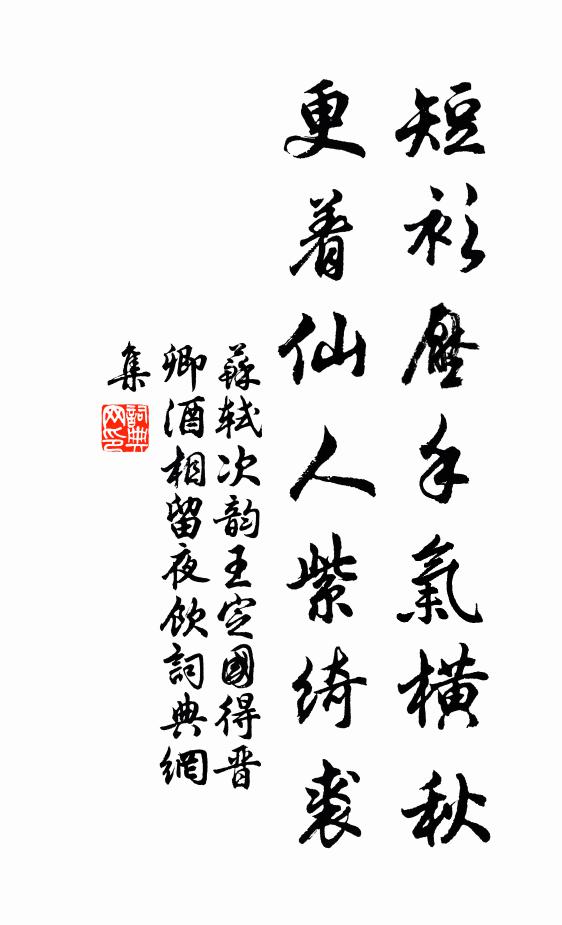 短衫壓手氣橫秋
更着仙人紫綺裘
蘇軾次韵王定國得晉
卿酒相留夜飲詞典網
集
詞典
网印